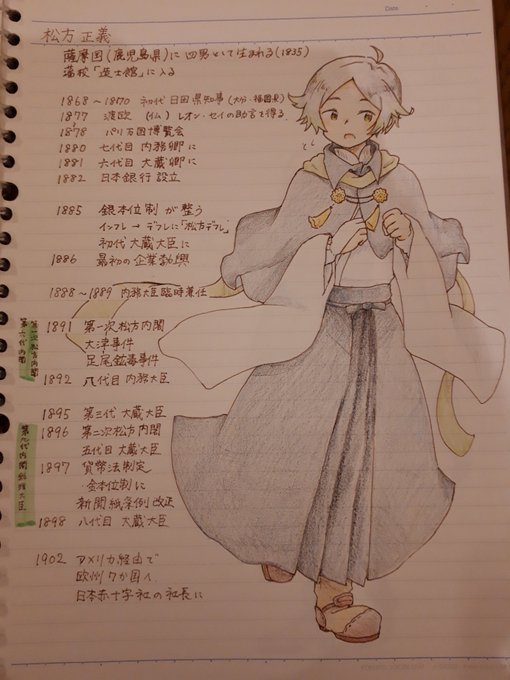 Date
松方 正義
薩摩国(鹿児島県)に 四男として生まれる(1835)
藩校「造士館」に入る
1868~1870 初代 日田県知事(大分・福岡県)
1877 渡欧 (仏) レオン・セイの助言を得る
1878 パリ万国博覧会
1880 七代目 内務卿に
1881 六代目 大蔵卿に
1882 日本銀行 設立
1885 銀本位制 が整う
インフレ → デフレに「松方デフレ」
初代 大蔵大臣に
1886 最初の企業勃興
1888~1889 内務大臣臨時兼任
第一次松方内閣
第六代内閣
1891 第一次松方内閣
大津事件
足尾鉱毒事件
1892 八代目 内務大臣
1895 第三代 大蔵大臣
第九代内閣総理大臣
1896 第二次松方内閣
五代目 大蔵大臣
1897 貨幣法制定
金本位制に
新聞紙条例 改正
1898 八代目 大蔵大臣
1902 アメリカ経由で
欧州7か国へ
日本赤十字社の社長に